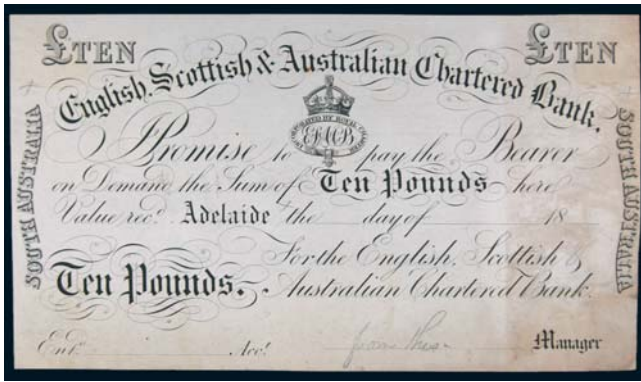 £TEN £TEN
English, Scottish & Australian Chartered Bank.
INCORPORATED BY ROYAL CHARTER
SOUTH AUSTRALIA
SOUTH AUSTRALIA
I Promise to pay the Bearer
on Demand the Sum of Ten Pounds here
Value rec.d Adelaide the day of 18
For the English, Scottish &
Ten Pounds. Australian Chartered Bank.
Ent.d Acc.t Manager